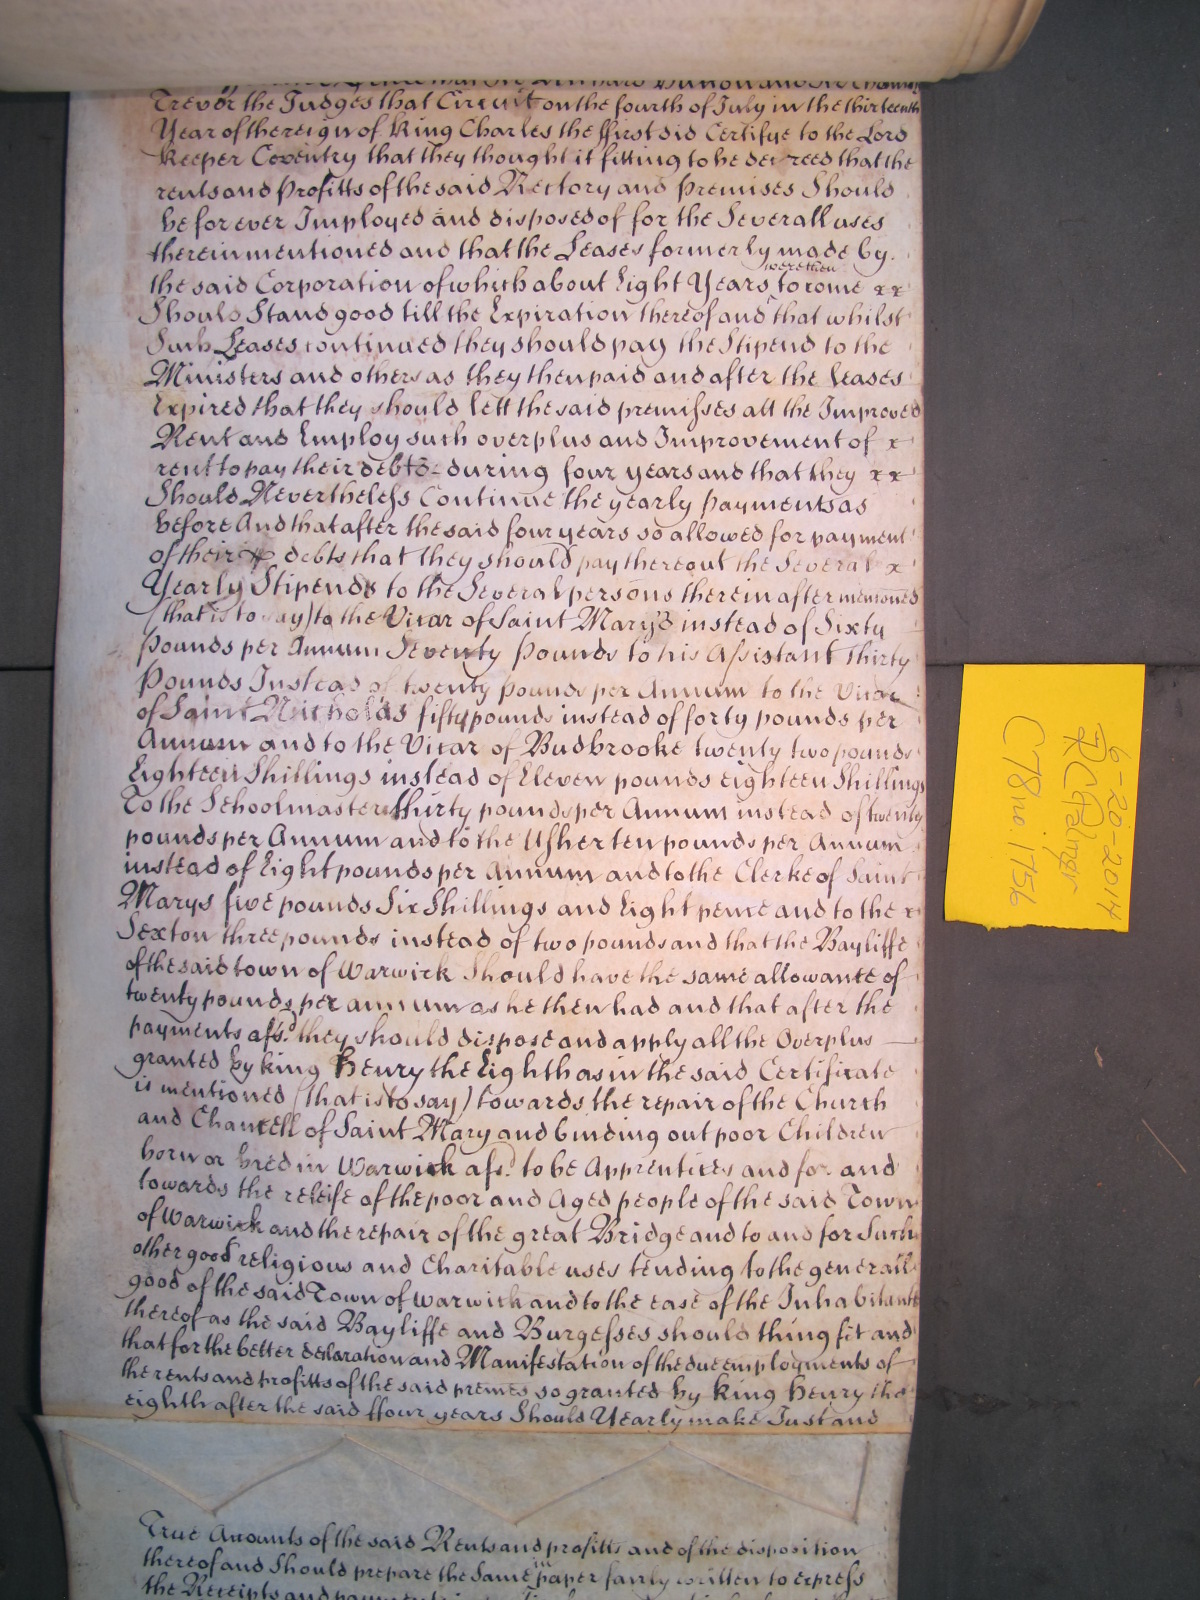 Trevor the Judges that Circuit on the fourth of July in the thirteenth
Year of the reign of King Charles the ffirst did Certifye to the Lord
Keeper Coventry that they thought it fitting to be decreed that the
rents and Profitts of the said Rectory and Premises Should
be for ever Imployed and disposed of for the Severall uses
therein mentioned and that the Leases formerly made by
the said Corporation of which about Eight Years were then to come xx
Should Stand good till the Expiration thereof and that whilst
Such Leases continued they should pay the Stipend to the
Ministers and others as they then paid and after the leases
Expired that they should lett the said premisses att the Improved
Rent and Employ such overplus and Improvement of x
rent to pay their debts during four years and that they xx
Should Nevertheless Continue the yearly payments as
before And that after the said four years so allowed for payment
of their debts that they should pay thereout the Several x
Yearly Stipends to the Several persons therein after mentioned
(that is to say) to the Vicar of Saint Mary's instead of Sixty
Pounds per Annum Seventy Pounds to his Assistant Thirty
Pounds Instead of twenty Pounds per Annum to the Vicar
of Saint Nicholas fifty pounds instead of forty pounds per
Annum and to the Vicar of Budbrooke twenty two pounds
Eighteen Shillings instead of Eleven pounds eighteen Shillings
To the Schoolmaster thirty pounds per Annum instead of twenty
pounds per Annum and to the Usher ten pounds per Annum
instead of Eight pounds per Annum and to the Clerke of Saint
Marys five pounds Six Shillings and Eight pence and to the x
Sexton three pounds instead of two pounds and that the Bayliffe
of the said town of Warwick Should have the same allowance of
twenty pounds per annum as he then had and that after the
payments afsd. they should dispose and apply all the Overplus
granted by king Henry the Eighth as in the said Certificate
is mentioned (that is to say) towards the repair of the Church
and Chancell of Saint Mary and binding out poor Children
born or bred in Warwick afsd. to be Apprentices and for and
towards the releife of the poor and Aged people of the said Town
of Warwick and the repair of the great Bridge and to and for Such
other good religious and Charitable uses tending to the generall
good of the said Town of Warwick and to the ease of the Inhabitants
thereof as the said Bayliffe and Burgesses should thing fit and
that for the better declaration and Manifestation of the due employments of
the rents and profitts of the said premes so granted by King Henry the
eighth after the said ffour years Should Yearly make Just and
True Accounts of the said Rents and profitts and of the disposition
thereof and Should prepare the Same in paper fairly written to express
the Receipts and
6-20-2014
RCPalmer
C78 no. 1756